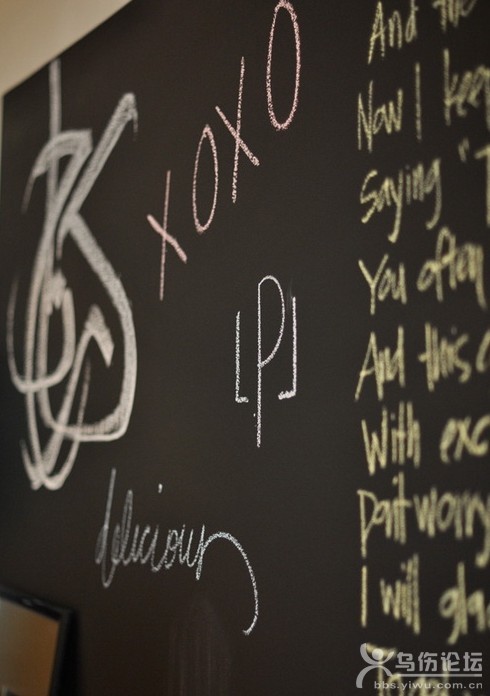 XOXO
[P]
delicious
And the
Now I keep
Saying "
You often
And this
With exc
Don't worry
I will gla
乌伤论坛
bbs.yiwu.com.cn